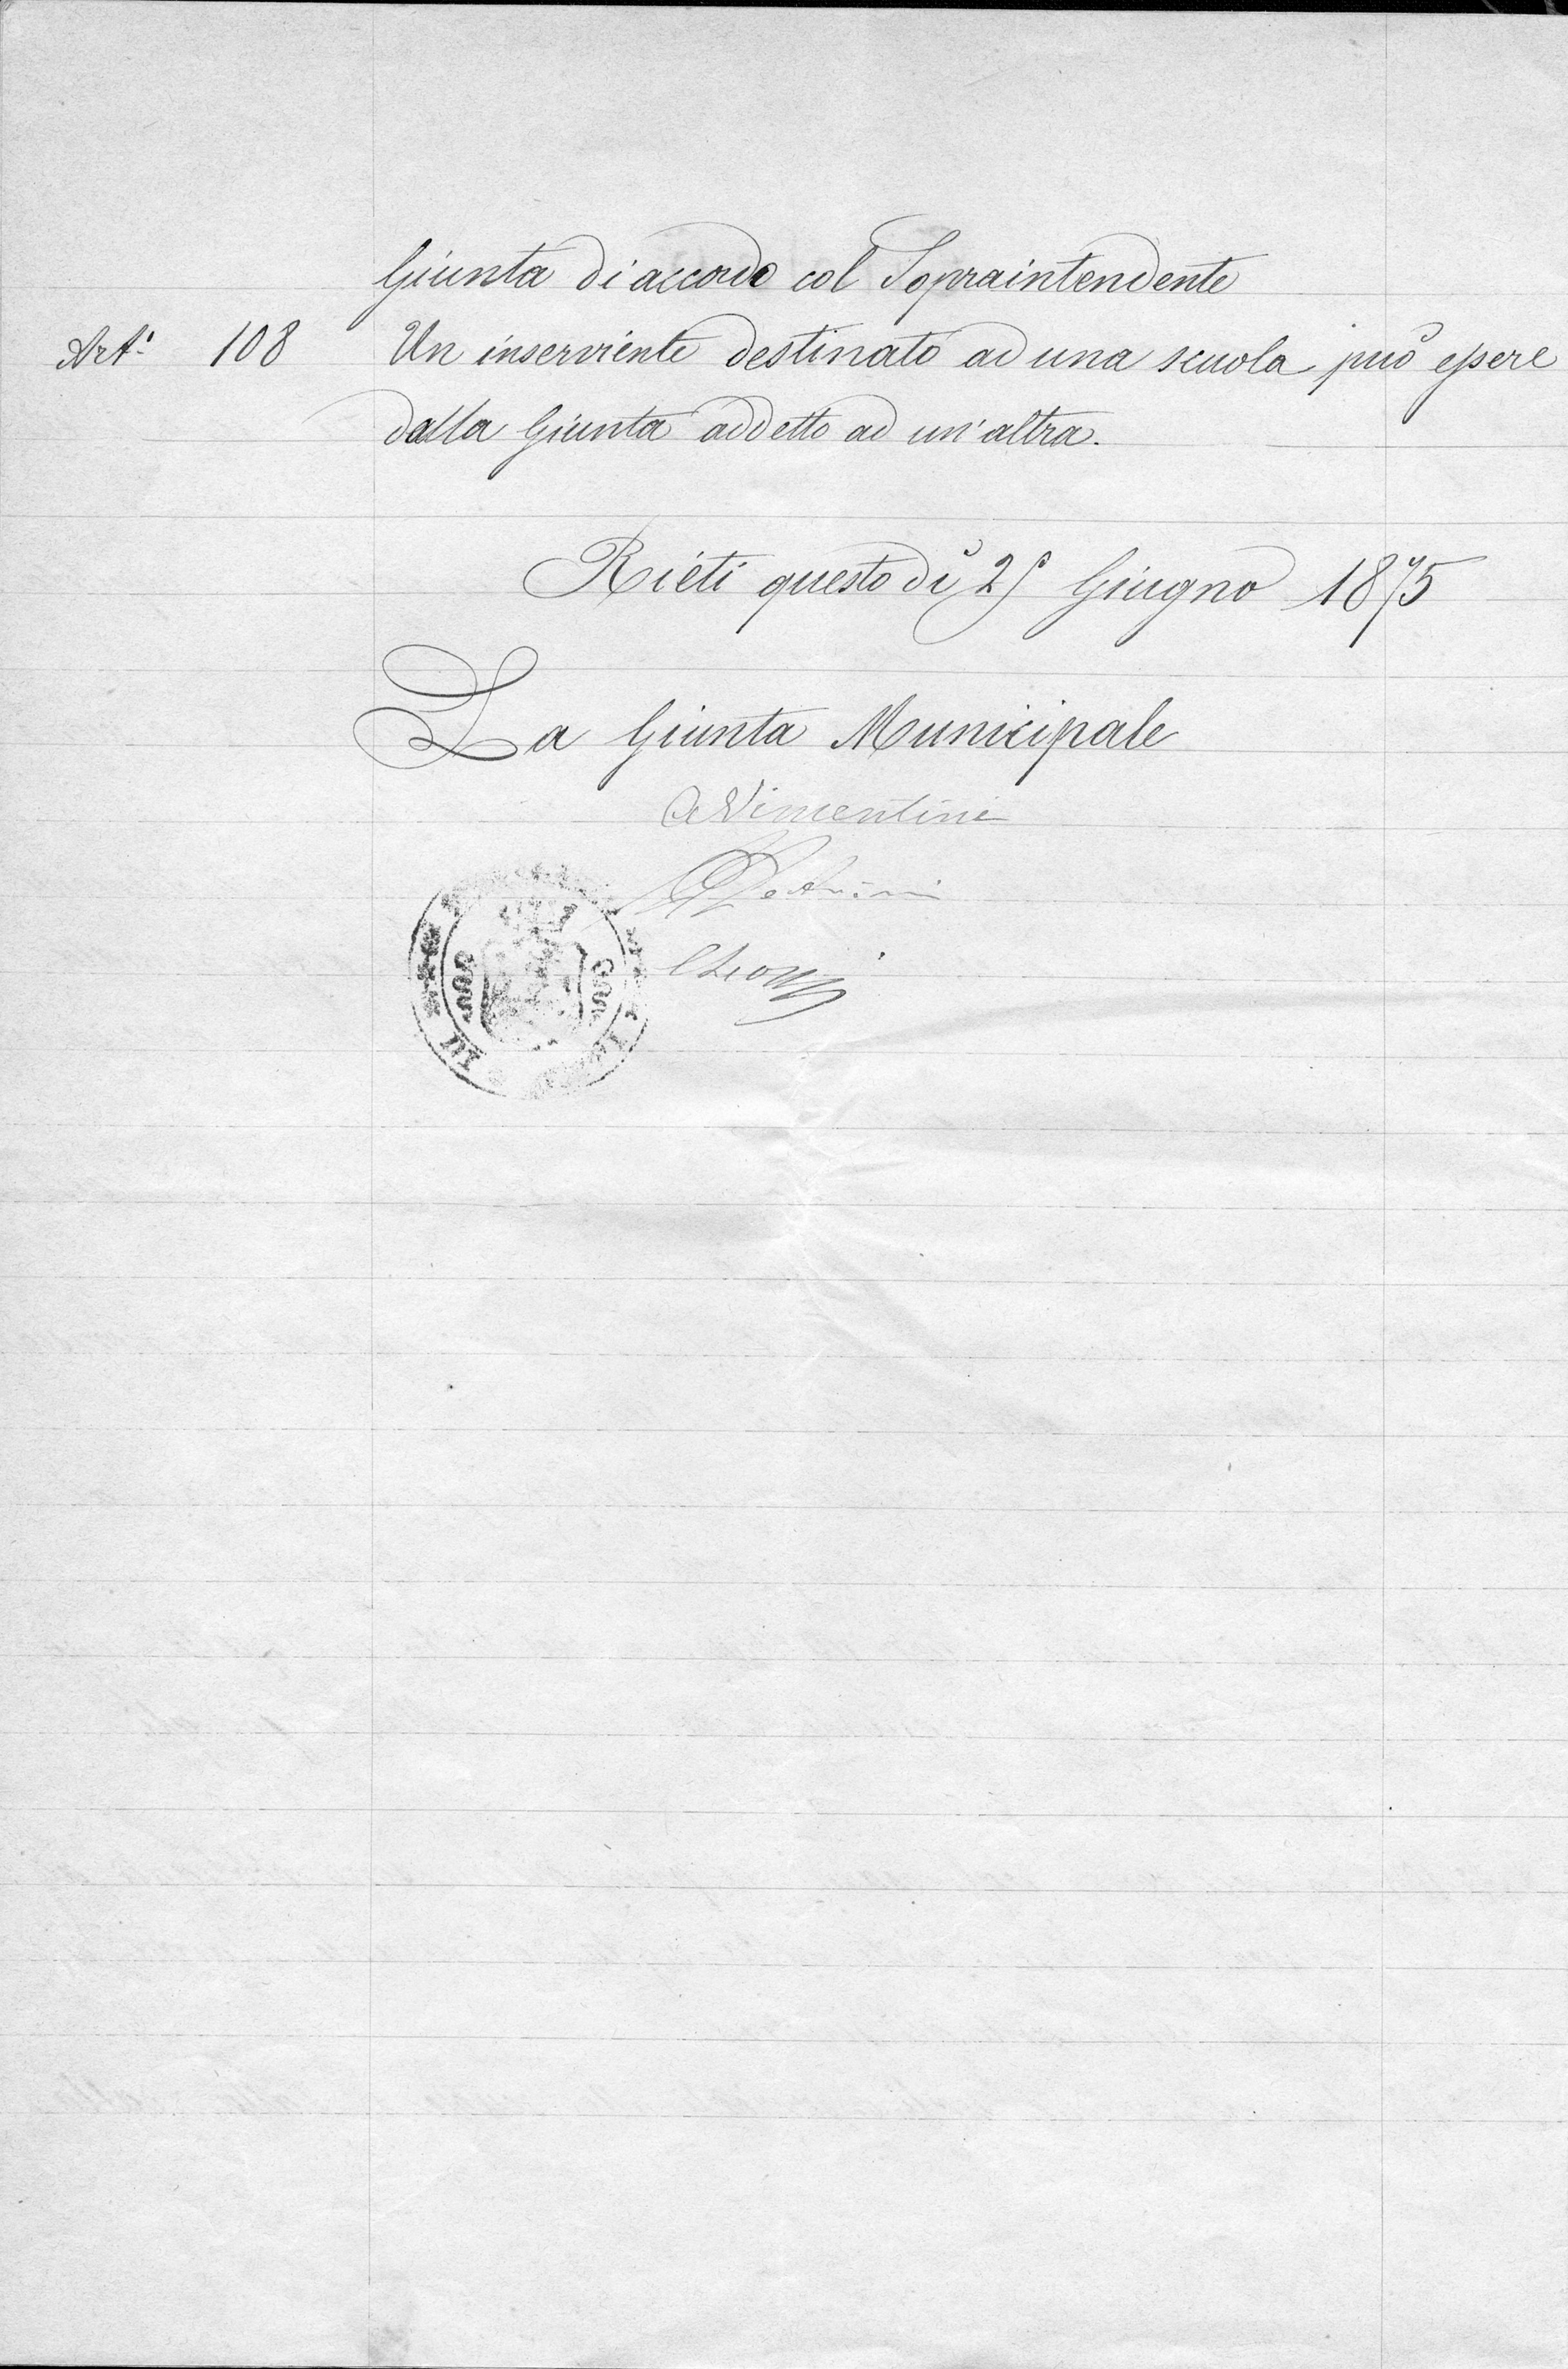 Giunta di accordo col Sopraintendente
Art. 108 Un inserviente destinato ad una scuola può essere
dalla Giunta addetto ad un'altra.
Rieti questo dì 25 Giugno 1875
La Giunta Municipale
Vincentini